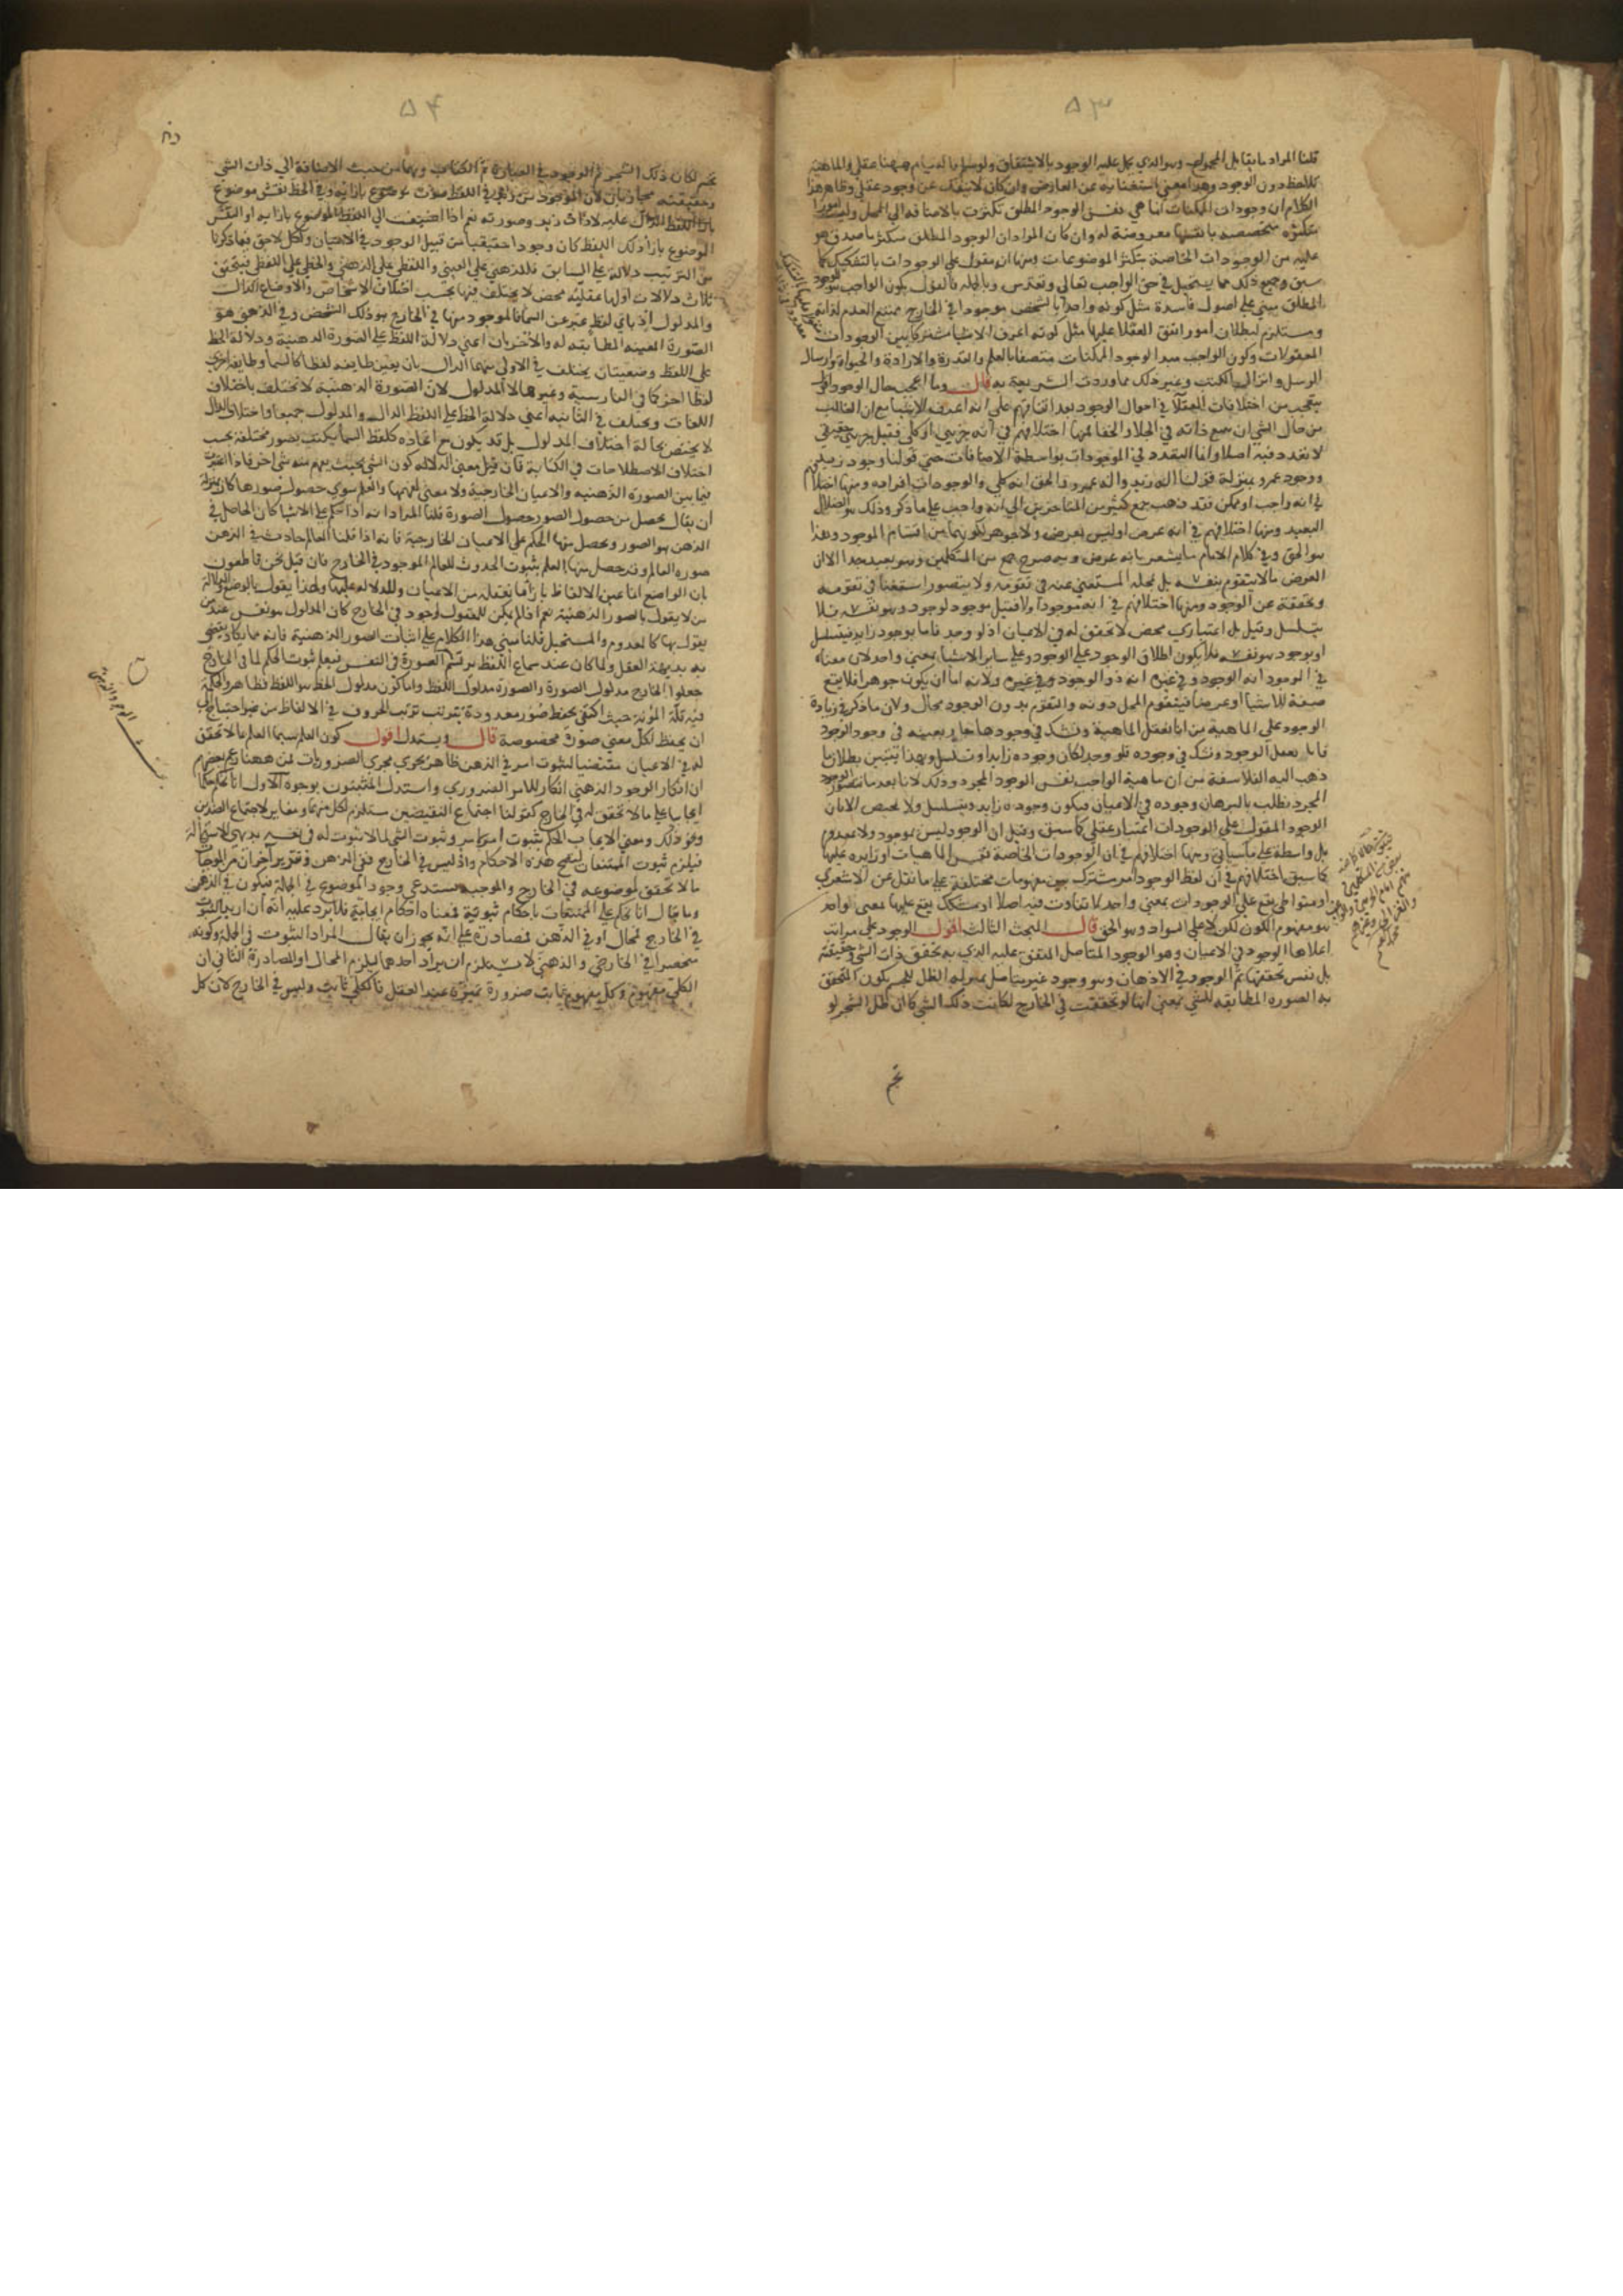 ٥٣
قلنا المراد ما يقابل المحمول وهو الذي يحمل عليه الوجود بالاشتقاق ولو سلم فالقيام ههنا عقلي والماهية
تلاحظ دون الوجود وهذا معنى استغنائه عن العارض وان كان لا ينفك عن وجود عقلي وظاهر هذا
الكلام ان وجودات الممكنات انما هي نفس الوجود المطلق تكثرت بالاضافة الى المحل وليست امورا
متكثرة متخصصة بانفسها معروضة له وان كان المراد ان الوجود المطلق متكثر ما صدق هو
عليه من الوجودات الخاصة بتكثر الموضوعات ومنها انه مقول على الوجودات بالتشكيك كما
سبق وجميع ذلك مما يستحيل في حق الواجب تعالى وتقدس وبالجملة فالقول بكون الواجب هو الوجود
المطلق مبني على اصول فاسدة مثل كونه واحدا بالشخص موجودا في الخارج ممتنع العدم لذاته
ومستلزم لبطلان امور اتفق العقلاء عليها مثل كونه اعرف الاشياء مشتركا بين الوجودات
المعقولات وكون الواجب مبدأ لوجود الممكنات متصفا بالعلم والقدرة والارادة والحياة وارسال
الرسل وانزال الكتب وغير ذلك مما وردت الشريعة به قال وما اعجب حال الوجود اقول
يتعجب من اختلافات العقلا في احوال الوجود بعد اتفاقهم على انه اعرف الاشيا مع ان الغالب
من حال الشي ان يتبع ذاته في الجلا والخفا فمنها اختلافهم في انه جزيي او كلي فقيل جزيي حقيقي
لا تعدد فيه اصلا وانما التعدد في الموجودات بواسطة الاضافات حتى قولنا وجود زيد
ووجود عمرو بمنزلة قولنا اله زيد واله عمرو والحق انه كلي والوجودات افراده ومنها اختلافهم
في انه واجب او ممكن فقد ذهب جمع كثير من المتاخرين الى انه واجب على ما ذكر وذلك هو الضلال
البعيد ومنها اختلافهم في انه عرض او ليس بعرض ولا جوهر لكونهما من اقسام الموجود وهذا
هو الحق وفي كلام الامام ما يشعر بانه عرض وبه صرح جمع من المتكلمين وهو بعيد جدا لان
العرض ما لا يتقوم بنفسه بل بمحله المستغني عنه في تقومه ولا يتصور استغناء في تقومه
وتحققه عن الوجود ومنها اختلافهم في انه موجود او لا فقيل موجود لوجود هو نفسه فلا
يتسلسل وقيل بل اعتباري محض لا تحقق له في الاعيان اذ لو وجد فاما بوجود زايد فيتسلسل
او بوجود هو نفسه فلا يكون اطلاق الوجود على الوجود وعلى ساير الاشيا بمعنى واحد لان معناه
في الوجود انه الوجود وفي غيره انه ذو الوجود وفي غيره ولانه اما ان يكون جوهرا فلا يقع
صفة للاشيا او عرضا فيتقوم المحل دونه والتقوم بدون الوجود محال ولان ما ذكر في زيادة
الوجود على الماهية من انا نعقل الماهية ونشك في وجودها جار بعينه في وجود الوجود
فانا نعقل الوجود ونشك في وجوده فلو وجد لكان وجوده زايدا وتسلسل وبهذا يتبين بطلان ما
ذهب اليه الفلاسفة من ان ماهية الواجب نفس الوجود المجرد وذلك لانا بعد ما نتصور الوجود
المجرد نطلب بالبرهان وجوده في الاعيان فيكون وجوده زايدا ويتسلسل ولا محيص الا بان
الوجود المقول على الوجودات اعتبار عقلي كما سبق وقيل ان الوجود ليس بموجود ولا معدوم
بل واسطة على ما سياتي ومنها اختلافهم في ان الوجودات الخاصة نفس الماهيات او زايدة عليها
كما سبق ومنها اختلافهم في ان لفظ الوجود مشترك بين مفهومات مختلفة على ما نقل عن الاشعري
او متواطي يقع على الوجودات بمعنى واحد لا تفاوت فيه اصلا او مشكك يقع عليها بمعنى واحد
هو مفهوم الكون لكن لا على السواء وهو الحق قال المبحث الثالث اقول الوجود على مراتب
اعلاها الوجود في الاعيان وهو الوجود المتاصل المتفق عليه الذي به تحقق ذات الشي وحقيقته
بل نفس تحققها ثم الوجود في الاذهان وهو وجود غير متاصل بمنزلة الظل للجسم يكون المتحقق
به الصورة المطابقة للشي بمعنى انها لو تحققت في الخارج لكانت ذلك الشي كما ان ظل الشجر لو
تجسم
٥٤
تجسم لكان ذلك الشجر ثم الوجود في العبارة ثم الكتابة وهما من حيث الاضافة الى ذات الشي
وحقيقته مجازيان لان الموجود من زيد في اللفظ صوت موضوع بازائه وفي الخط نقش موضوع
بازاء اللفظ الدال عليه لا ذات زيد وصورته نعم اذا اضيف الى اللفظ الموضوع بازايه او النقش
الموضوع بازاء ذلك اللفظ كان وجودا حقيقيا من قبيل الوجود في الاعيان ولكل لاحق فيما ذكرنا
من الترتيب دلالة على السابق فللذهني على العيني واللفظي على الذهني والخطي على اللفظي فيتحقق
ثلاث دلالات اولها عقلية محض لا يختلف فيها بحسب اختلاف الاشخاص والاوضاع الدال
والمدلول اذ باي لفظ عبر عن السما فالموجود منها في الخارج هو ذلك الشخص وفي الذهن هو
الصورة المعينة المطابقة له والاخريان اعني دلالة اللفظ على الصورة الذهنية ودلالة الخط
على اللفظ وضعيتان يختلف في الاولى منهما الدال بان يعين طايفة لفظا كالسما وطايفة اخرى
لفظا اخر كما في الفارسية وغيرها لا المدلول لان الصورة الذهنية لا تختلف باختلاف
اللغات ويختلف في الثانية اعني دلالة الخط على اللفظ الدال والمدلول جميعا واختلاف الدال
لا يختص بحالة اختلاف المدلول بل قد يكون مع اتحاده كلفظ السما يكتب بصور مختلفة بحسب
اختلاف الاصطلاحات في الكتابة فان قيل معنى الدلالة كون الشي بحيث يفهم منه شي اخر فاذا اعتبرت
فيما بين الصورة الذهنية والاعيان الخارجية ولا معنى لفهمها والعلم سوى حصول صورها كان بمنزلة
ان يقال يحصل من حصول الصور حصول الصورة قلنا المراد انه اذا حكم على الاشيا كان الحاصل في
الذهن هو الصور ويحصل منها الحكم على الاعيان الخارجية فانه اذا قلنا العالم حادث في الذهن
صورة العالم وقد حصل منها العلم بثبوت الحدوث للعالم الموجود في الخارج فان قيل نحن قاطعون
بان الواضع انما عين الالفاظ بازاء ما نعقله من الاعيان وللدلالة عليها ولهذا يقول بالوضع والدلالة
من لا يقول بالصور الذهنية نعم اذا لم يكن للمعقول وجود في الخارج كان المدلول هو نفس عند من
يقول بها كالمعدوم والمستحيل قلنا مبني هذا الكلام على اثبات الصور الذهنية فانه مما يكاد يقضي
به بديهة العقل ولما كان عند سماع اللفظ ترتسم الصورة في النفس فيعلم ثبوت الحكم لما في الخارج
جعلوا الخارج مدلول الصورة والصورة مدلول اللفظ واما كون مدلول الخط هو اللفظ فظاهر والحكمة
فيه قلة المؤنة حيث اكتفى بحفظ صور معدودة بترتب ترتب الحروف في الالفاظ من غير احتياج الى
ان يحفظ لكل معنى صورة مخصوصة قال ويستدل اقول كون العلم سيما العلم بما لا تحقق
له في الاعيان مقتضيا لثبوت امر في الذهن ظاهر يجري مجرى الضروريات فمن ههنا زعم بعضهم
ان انكار الوجود الذهني انكار للامر الضروري واستدل المثبتون بوجوه الاول انا نحكم حكما
ايجابيا على ما لا تحقق له في الخارج كقولنا اجتماع النقيضين مستلزم لكل منهما ومغاير لاجتماع الضدين
ونحو ذلك ومعنى الايجاب الحكم بثبوت امر لامر وثبوت الشي لما لا ثبوت له في نفسه بديهي الاستحالة
فيلزم ثبوت الممتنعات ليصح هذه الاحكام واذ ليس في الخارج ففي الذهن وتقرير اخر ان من الموجبات
ما لا تحقق لموضوعه في الخارج والموجبة تستدعي وجود الموضوع في الجملة فيكون في الذهن
وما يقال انا نحكم على الممتنعات باحكام ثبوتية فمعناه احكام ايجابية فلا يرد عليه انه ان اريد الثبوت
في الخارج فمحال او في الذهن فمصادرة على انه يجوز ان يقال المراد الثبوت في الجملة وكونه
منحصرا في الخارجي والذهني لا يستلزم ان يراد احدهما ليلزم المحال او المصادرة الثاني ان
الكلي مفهوم وكل مفهوم ثابت ضرورة تميزه عند العقل فالكلي ثابت وليس في الخارج لان كل